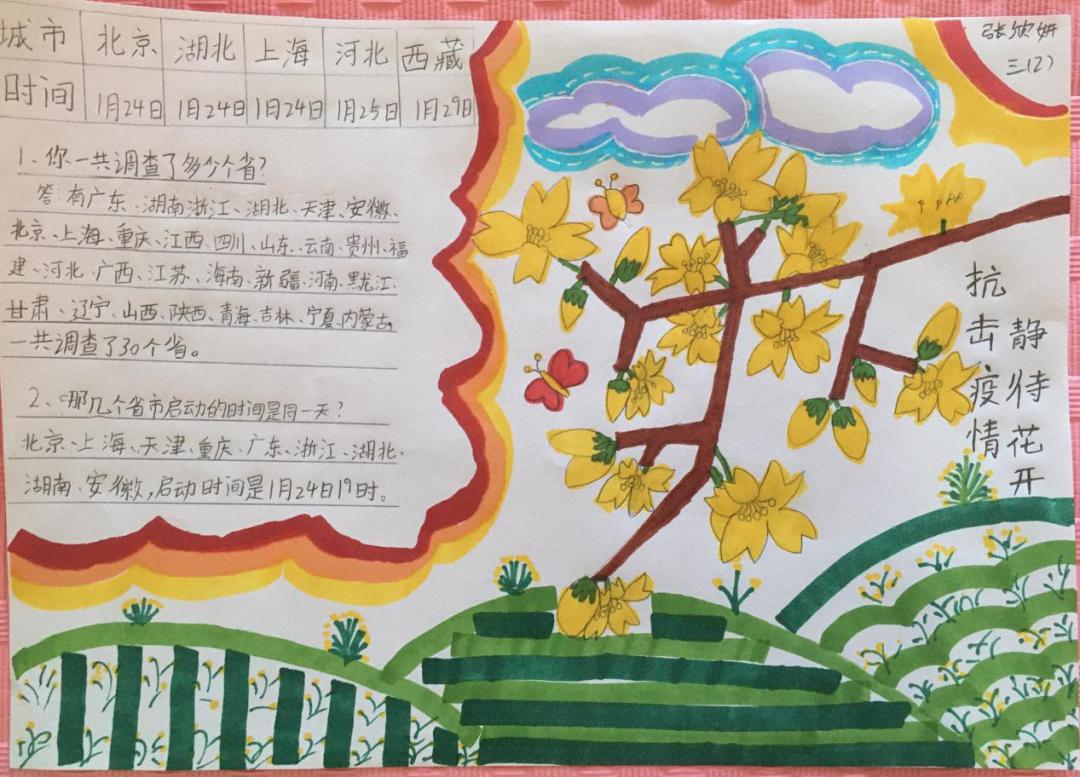 城市 北京 湖北 上海 河北 西藏
时间 1月24日 1月24日 1月24日 1月25日 1月29日
1、你一共调查了多少个省?
答:有广东、湖南、浙江、湖北、天津、安徽、
北京、上海、重庆、江西、四川、山东、云南、贵州、福
建、河北、广西、江苏、海南、新疆、河南、黑龙江、
甘肃、辽宁、山西、陕西、青海、吉林、宁夏、内蒙古,
一共调查了30个省。
2、哪几个省市启动的时间是同一天?
北京、上海、天津、重庆、广东、浙江、湖北、
湖南、安徽,启动时间是1月24日19时。
张欣妍
三(2)
抗击疫情
静待花开